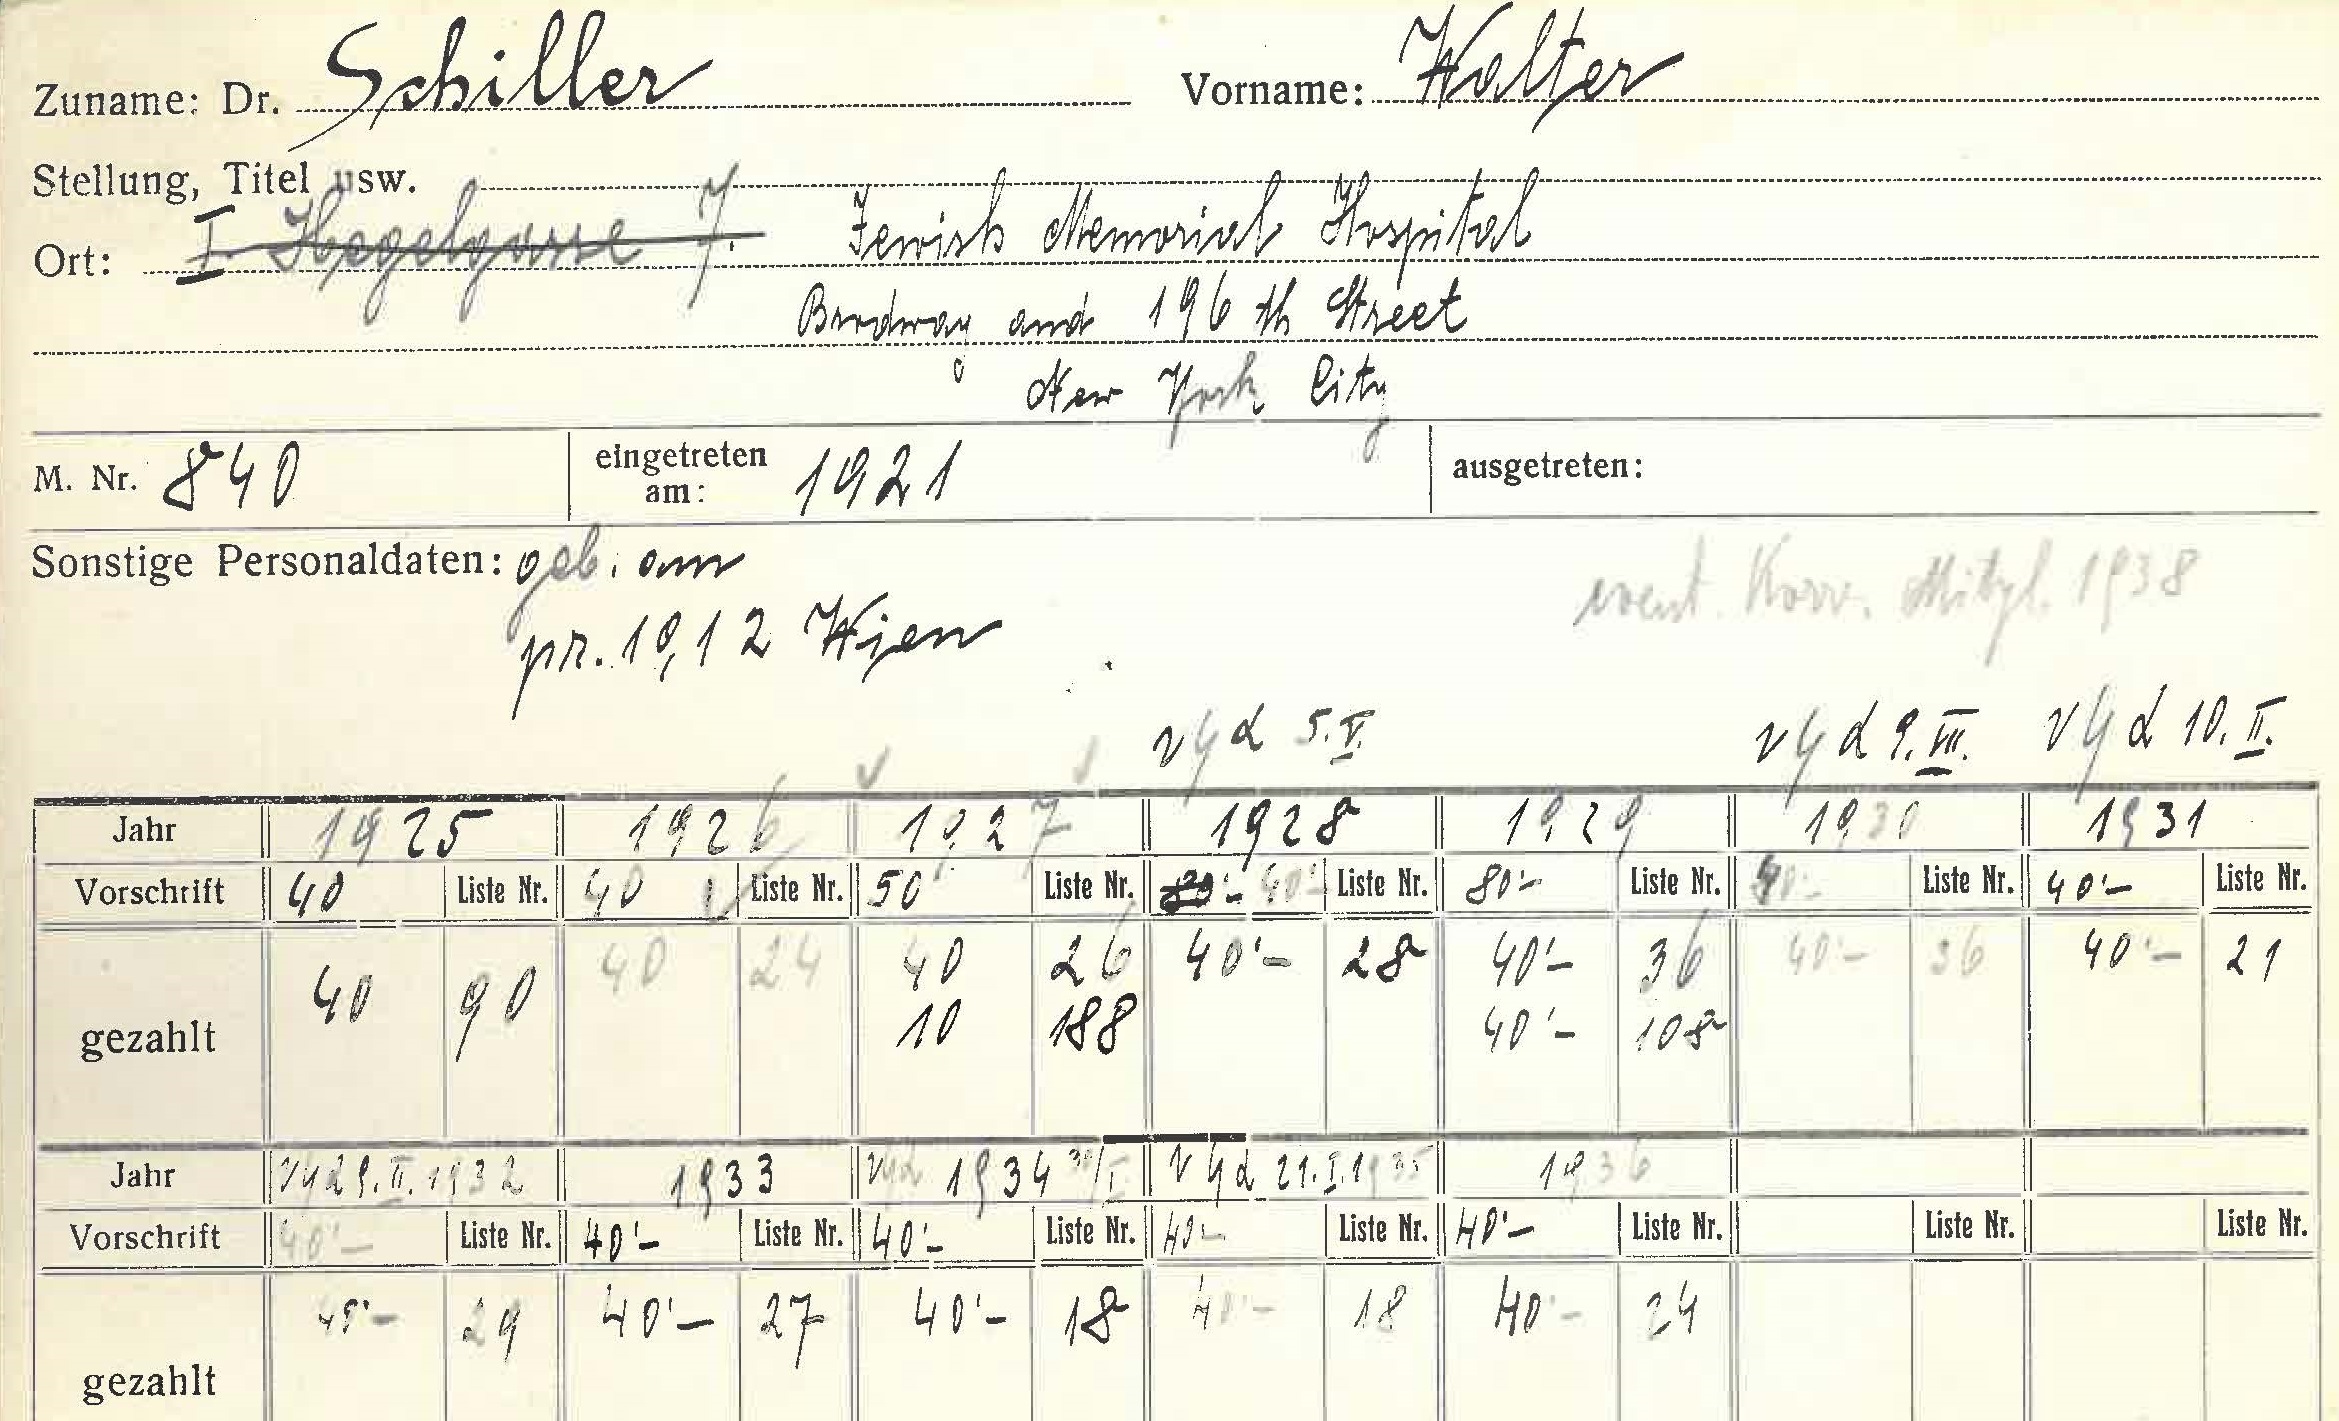 Zuname: Dr. Schiller Vorname: Walter
Stellung, Titel usw.
Ort: I. Hegelgasse 7. Jewish Memorial Hospital
Brodway and 196 th Street
New York City
M. Nr. 840 eingetreten am: 1921 ausgetreten:
Sonstige Personaldaten: geb. am
event. Korr. Mitgl. 1938
pr. 1912 Wien
5.V. 9.III. 10.II.
Jahr 1925 1926 1927 1928 1929 1930 1931
Vorschrift 40 Liste Nr. 40 Liste Nr. 50 Liste Nr. 80'- 40'- Liste Nr. 80'- Liste Nr. 40'- Liste Nr. 40'- Liste Nr.
gezahlt 40 90 40 24 40 26 40'- 28 40'- 36 40'- 36 40'- 21
10 188 40'- 108
Jahr 9.II. 1932 1933 1934 30/I 21.I.1935 1936
Vorschrift 40'- Liste Nr. 40'- Liste Nr. 40'- Liste Nr. 40- Liste Nr. 40'- Liste Nr. Liste Nr. Liste Nr.
gezahlt 40'- 29 40'- 27 40'- 18 40'- 18 40'- 24